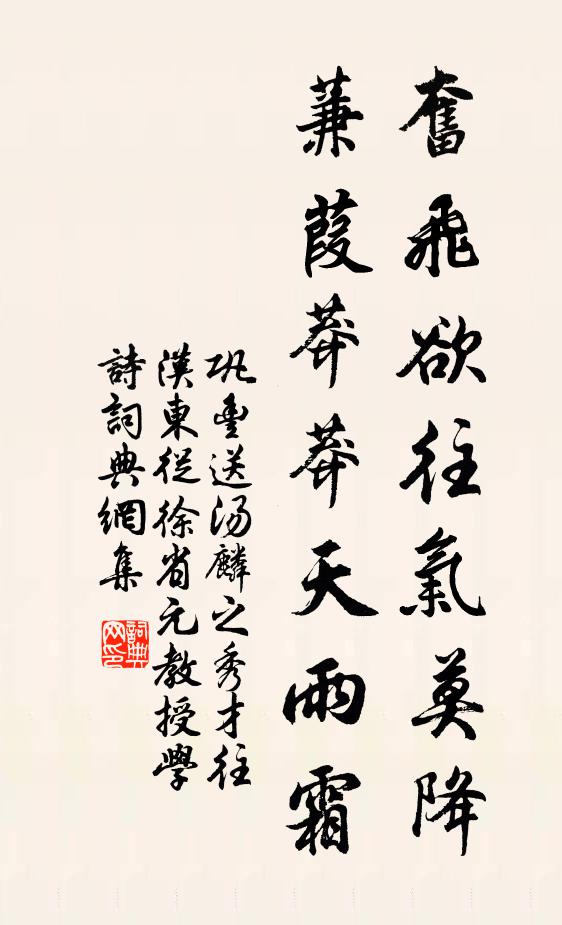 奮飛欲往氣莫降
蒹葭莽莽天雨霜
巩豐送湯麟之秀才往
漢東從徐省元教授學
詩詞典網集
詞典网印